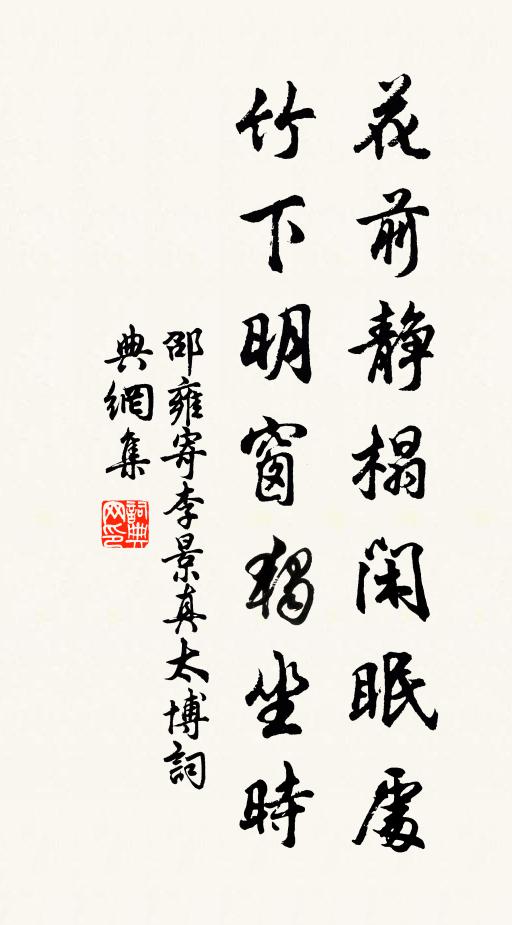 花前靜榻閑眠處
竹下明窗獨坐時
邵雍寄李景真太博詞
典網集
詞典
网印